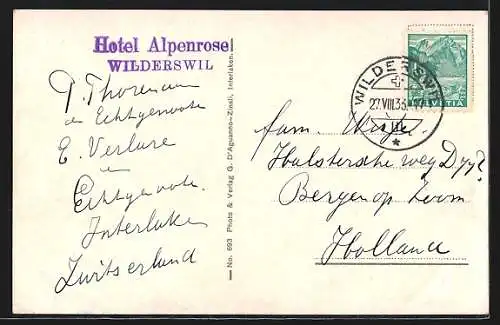 Hotel Alpenrose
WILDERSWIL
en Echtgenoote
E.
en
Echtgenoote.
Interlaken
Zwitserland
No. 693 Photo & Verlag G. D'Aguanno-Zinsli, Interlaken.
WILDERSWIL
27.VIII.36.
HELVETIA
Fam.
Halstersche weg
Bergen op Zoom
Holland